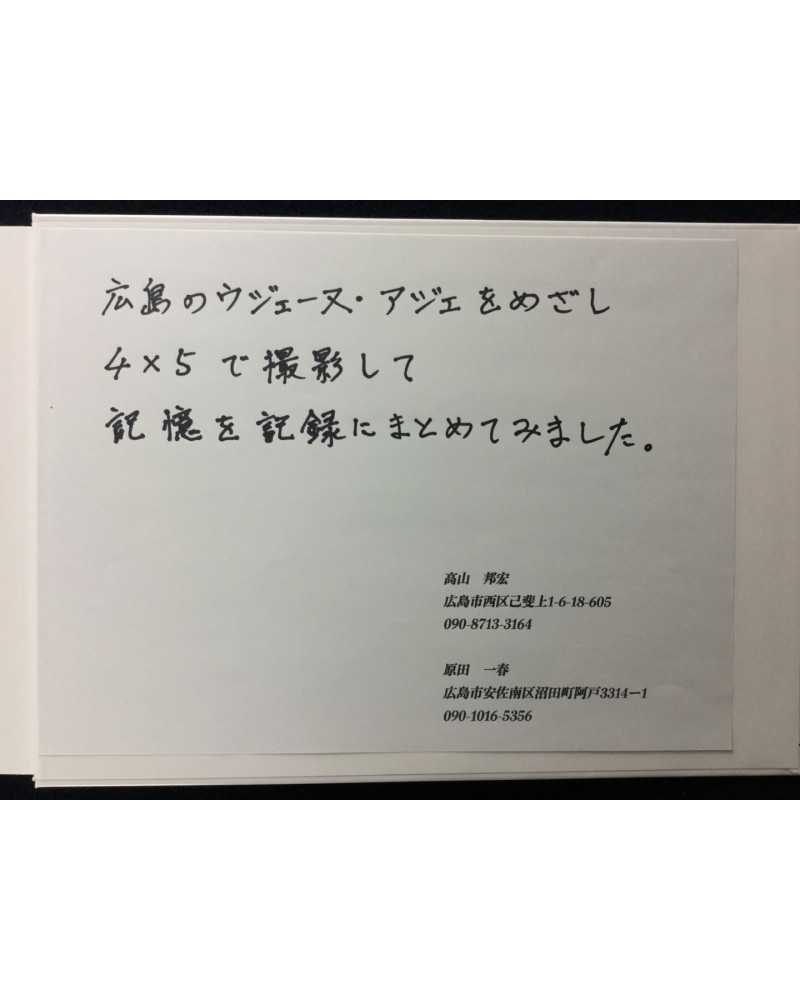 広島のウジェーヌ・アジェをめざし
4×5で撮影して
記憶を記録にまとめてみました。
高山 邦宏
広島市西区己斐上1-6-18-605
090-8713-3164
原田 一春
広島市安佐南区沼田町阿戸3314ー1
090-1016-5356